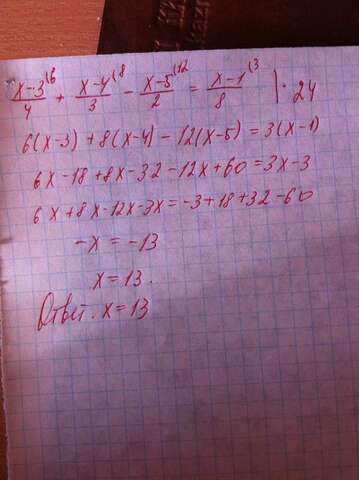 (x-3)/4 (6 + (x-4)/3 (8 - (x-5)/2 (12 = (x-1)/8 (3 | · 24
6(x-3) + 8(x-4) - 12(x-5) = 3(x-1)
6x - 18 + 8x - 32 - 12x + 60 = 3x - 3
6x + 8x - 12x - 3x = -3 + 18 + 32 - 60
-x = -13
x = 13.
Ответ. x = 13